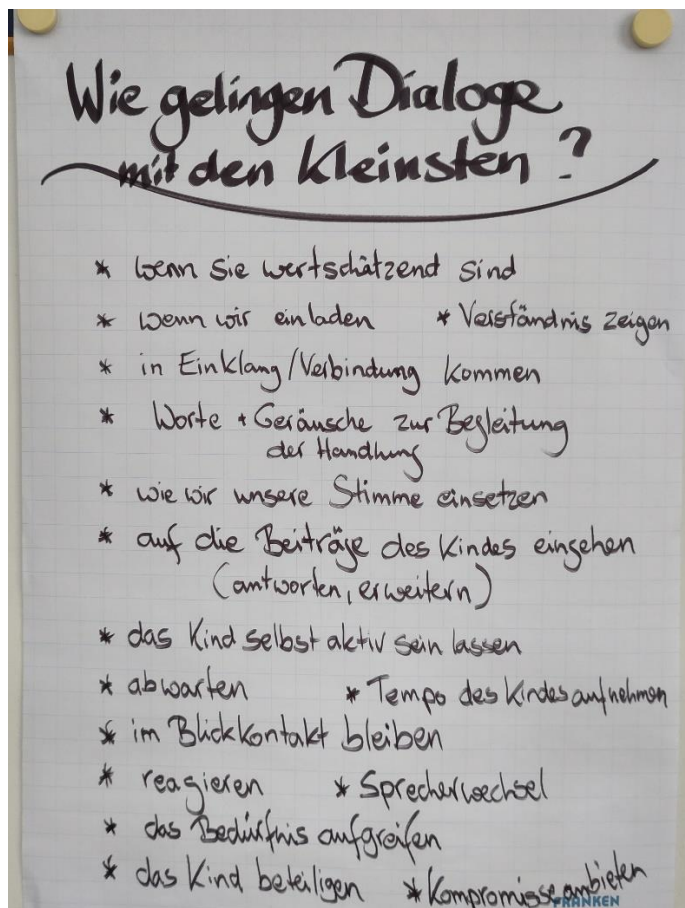 Wie gelingen Dialoge
mit den Kleinsten?
* wenn sie wertschätzend sind
* wenn wir einladen * Verständnis zeigen
* in Einklang/Verbindung kommen
* Worte + Geräusche zur Begleitung
der Handlung
* wie wir unsere Stimme einsetzen
* auf die Beiträge des Kindes eingehen
(antworten, erweitern)
* das Kind selbst aktiv sein lassen
* abwarten * Tempo des Kindes aufnehmen
* im Blickkontakt bleiben
* reagieren * Sprecherwechsel
* das Bedürfnis aufgreifen
* das Kind beteiligen * Kompromisse anbieten
FRANKEN